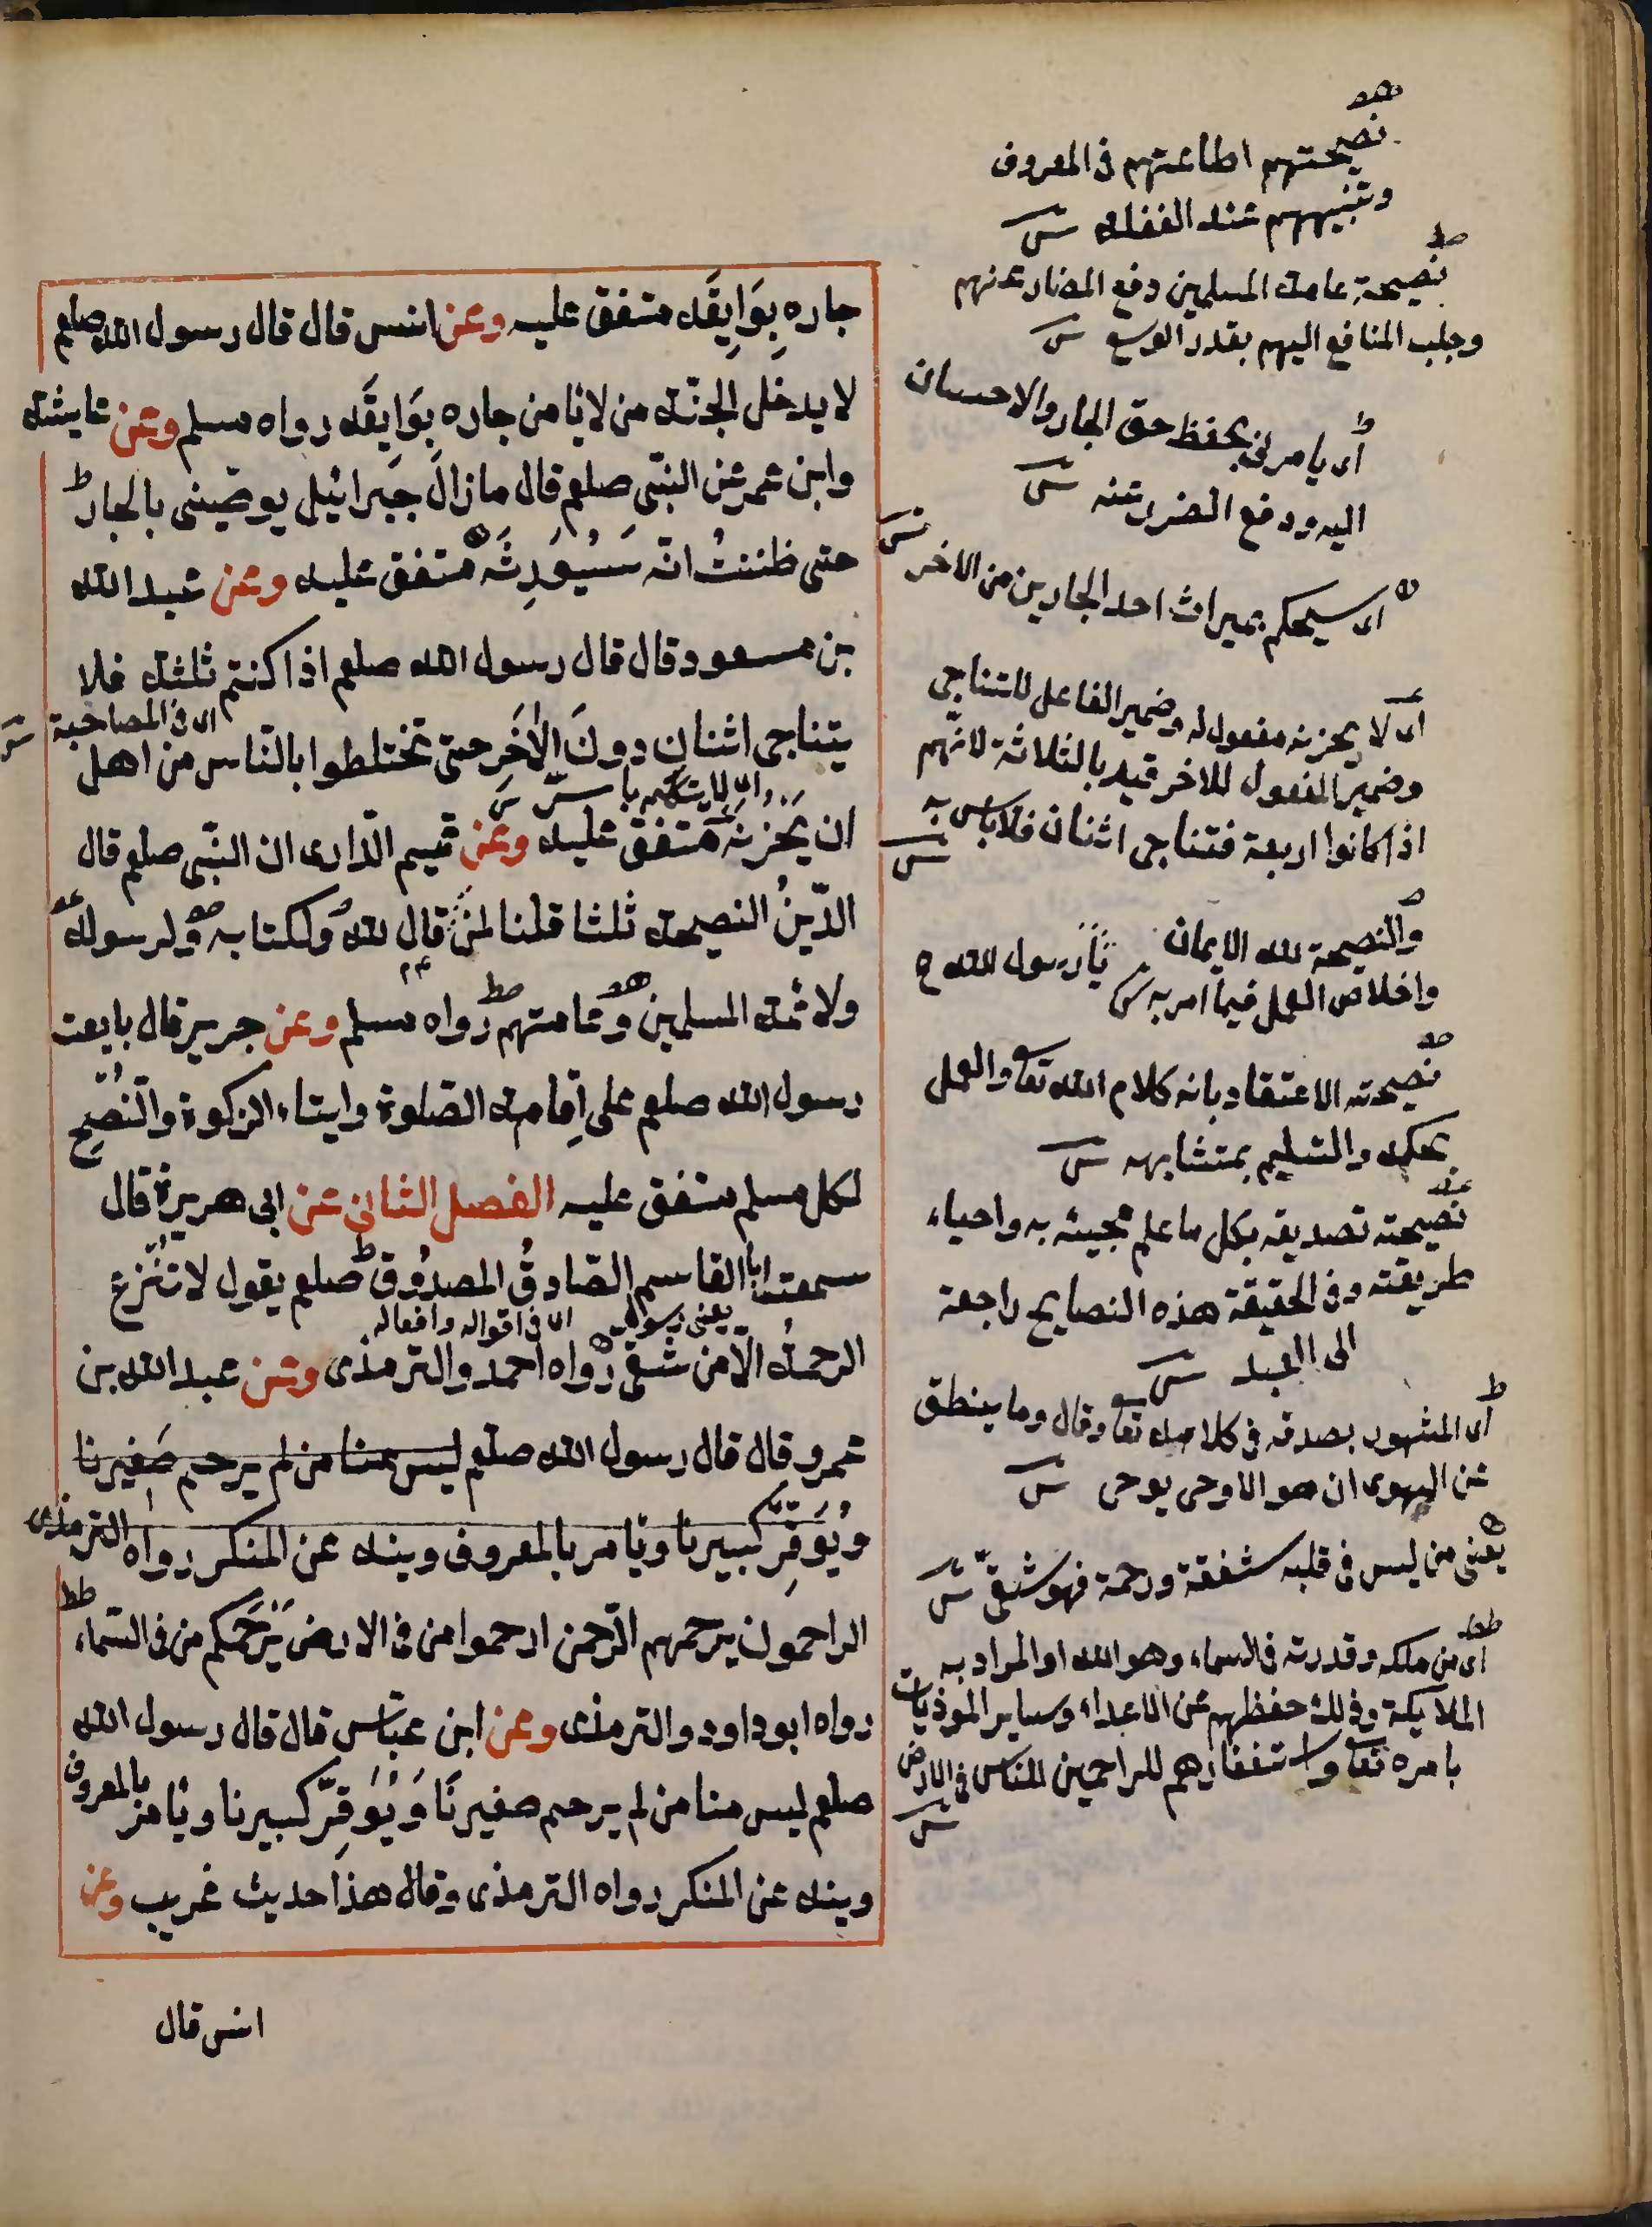 جاره بِوَايِقَه متفق عليه وعن انس قال قال رسول الله صلعم
لا يدخل الجنّة من لا ئامن جاره بِوَايقَه رواه مسلم وعن عايشة
وابن عمر عن النبّى صلعم قال مازالَ جَبرائيل يوصّينى بالجار
حتى ظننتُ انّه سَيُوَرِثَه متفق عليه وعن عبد الله
بن مسعود قال قال رسول الله صلعم اذا كنتم ثلثة فلا
يتناجى اثنانِ دونَ الأخَرِ حتى تختلطوا بالنّاس من اهل
اى فى المصاحبة
ان يَحْزنَه متفق عليه وعن تميم الدّارى ان النبّى صلعم قال
الدّينُ النصيحة ثلثا قلنا لمن قال لله ولكتابه ولرسوله
ولائمة المسلمين وعامتهم رواه مسلم وعن جرير قال بايعت
رسول الله صلعم على اِقامة الصّلوة وايتاء الزكوة والنُّصْحِ
لكل مسلم متفق عليه الفصل الثانى عن ابى هريرة قال
سمعت ابا القاسم الصّادقُ المصدُوق صلعم يقول لا تُنْزع
يعنى رسول اى فى اقواله وافعاله
الرحمةُ الّا من شقى رواه احمد والترمذى وعن عبد الله بن
عمرو قال قال رسول الله صلعم ليس منا من لم يرحم صَغيرنا
ويُوَقِّر كبيرنا وئامر بالمعروف وينه عن المنكر رواه الترمذى
الراحمون يرحمهم الرّحمن ارحموا من فى الارض يَرْحَمكم من فى السّماء
رواه ابو داود والترمذى وعن ابن عبّاس قال قال رسول الله
صلعم ليس منا من لم يرحم صغيرنَا وَيُوَقِّر كبيرنا وئامر بالمعروف
وينه عن المنكر رواه الترمذى وقال هذا حديث غريب وعن
انس قال
نصيحتهم اطاعتهم فى المعروف
وتنبيههم عند الغفلة
نصيحة عامة المسلمين دفع المضار عنهم
وجلب المنافع اليهم بقدر الوسع
اى يامرنى بحفظ حق الجار والاحسان
اليه ودفع الضرر عنه
اى سيحكم بميراث احد الجارين من الاخر
اى لا يحزنه مفعول له وضمير الفاعل للتناجى
وضمير المفعول للاخر قيد بالثلاثة لانّهم
اذا كانوا اربعة فتناجى اثنان فلا باس به
والنصيحة لله الايمان
واخلاص العمل فيما امر به
يا رسول الله
نصيحته الاعتقاد بانه كلام الله تعا والعمل
بمحكمه والتسليم بمتشابهه
نصيحته تصديقه بكل ما علم مجيئه به واحياء
طريقته وفى الحقيقة هذه النصايح راجعة
الى العبد
اى المشهور بصدقه فى كلامه تعا وقال وما ينطق
عن الهوى ان هو الا وحى يوحى
يعنى من ليس فى قلبه شفقة ورحمة فهو شقىّ
اى من ملكه وقدرته فى السماء وهو الله او المراد به
الملايكة وذلك حفظهم عن الاعداء وساير الموذيات
بامره تعا واستغفارهم للراحمين للناس فى الارض